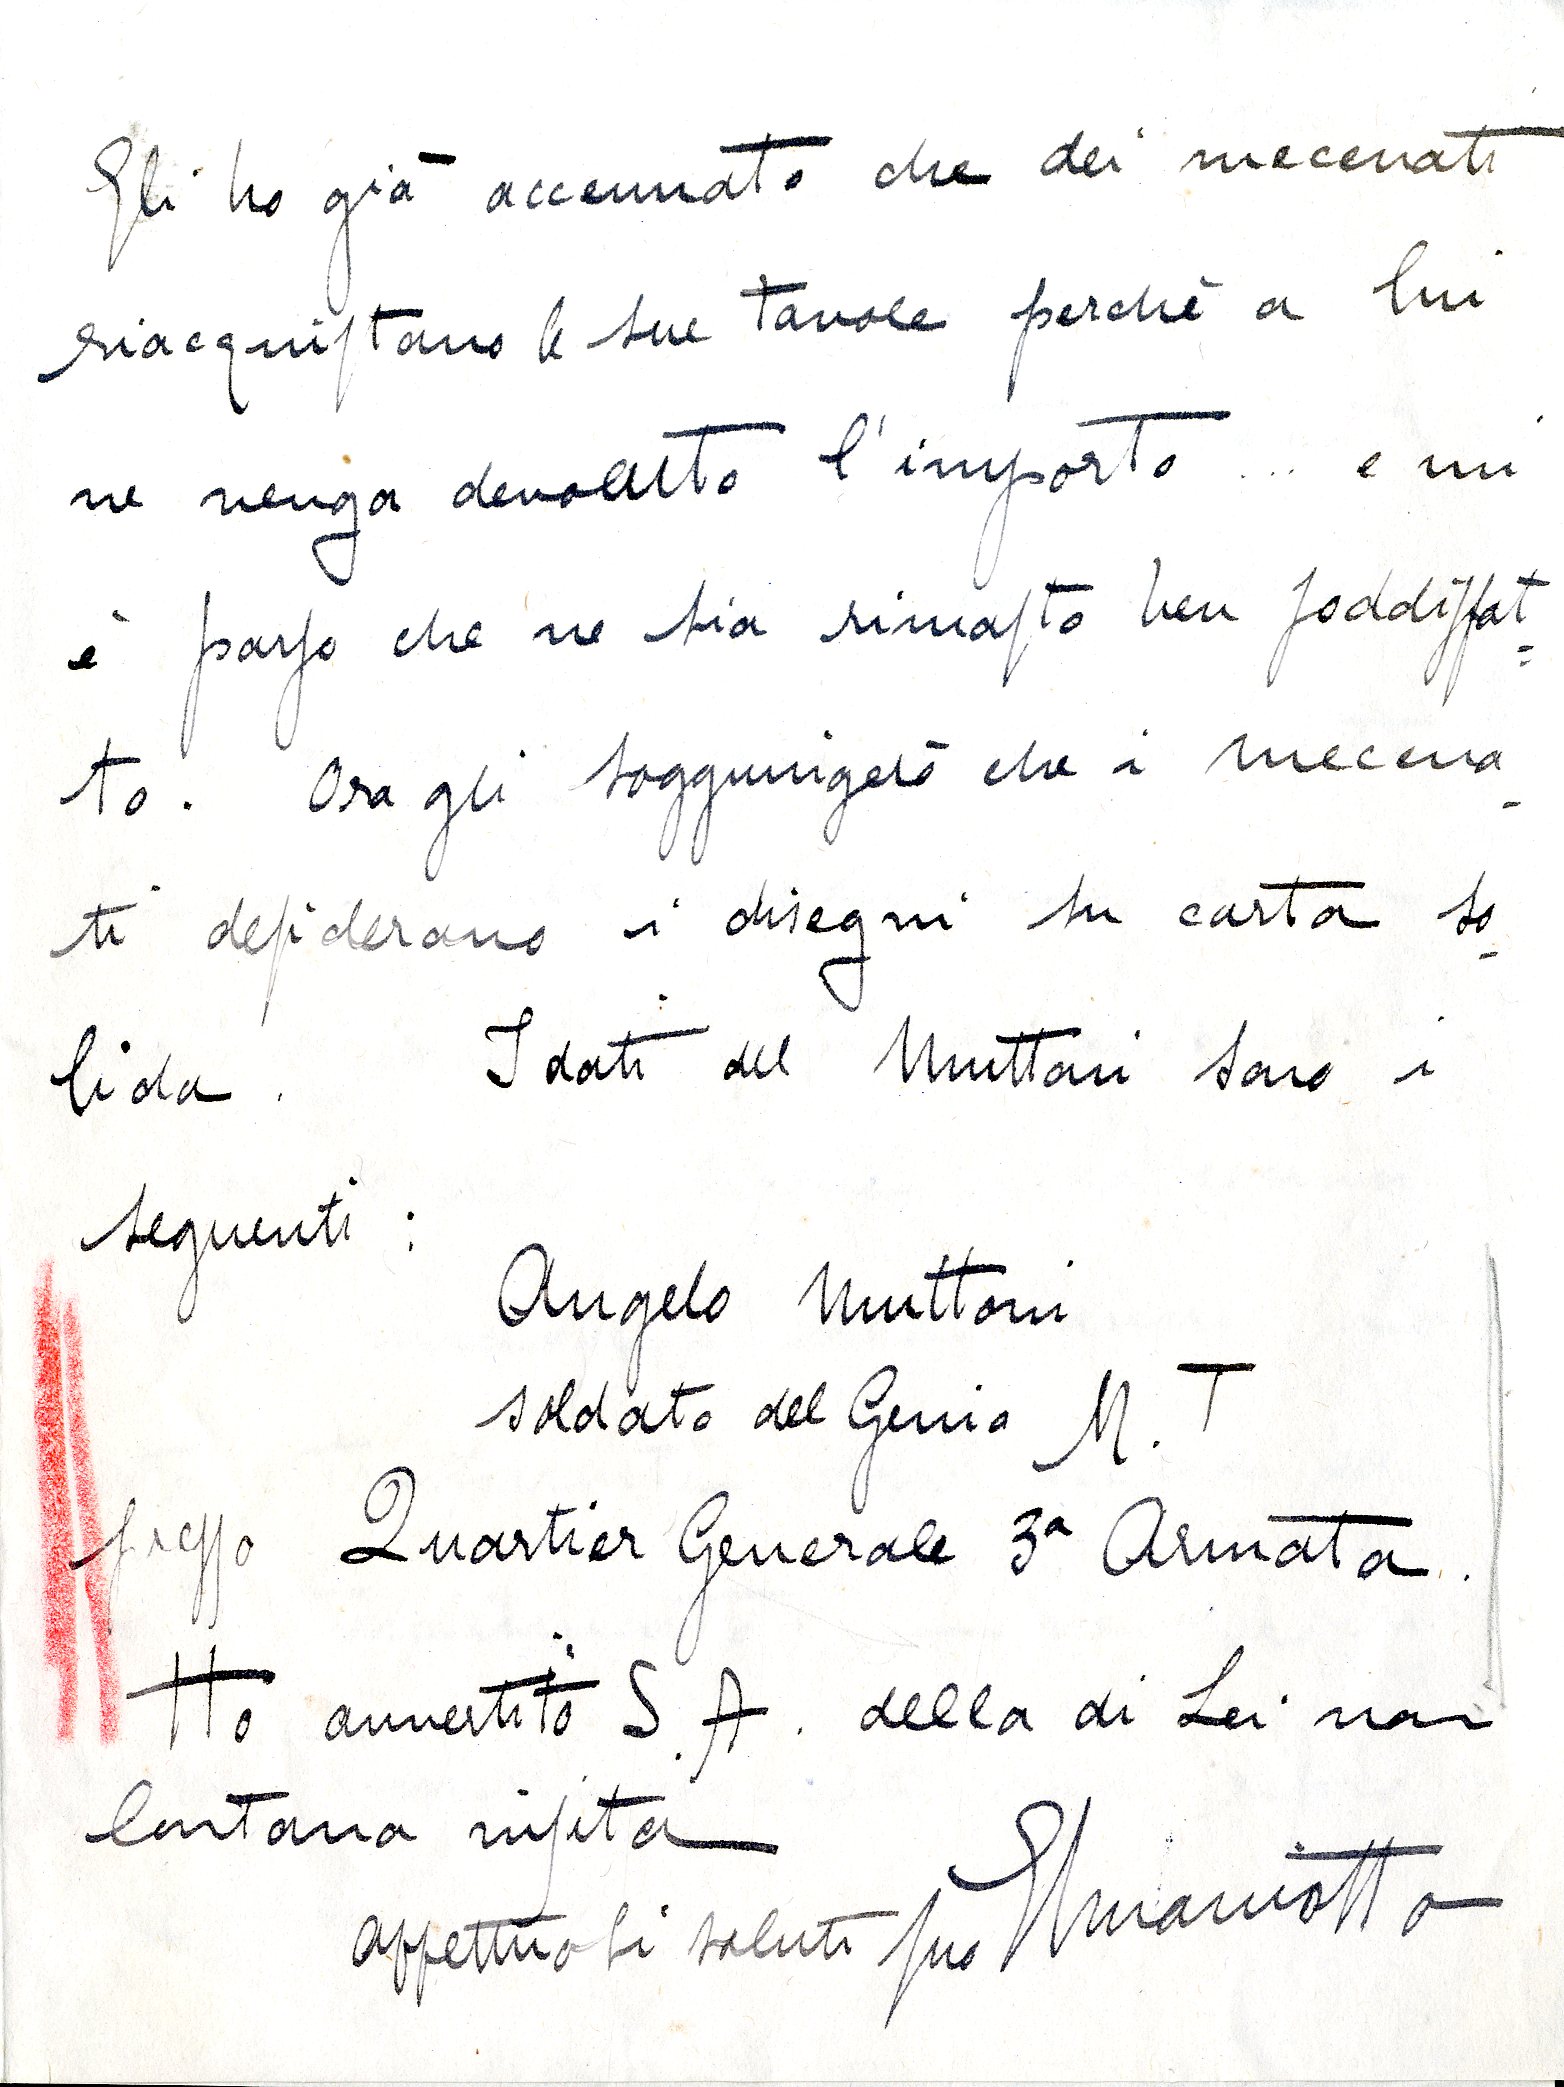 Gli ho già accennato che dei mecenati
riacquistano le sue tavole perchè a lui
ne venga devoluto l'importo ... e mi
è parso che ne sia rimasto ben soddisfat=
to. Ora gli soggiungerò che i mecena-
ti desiderano i disegni su carta so-
lida. I dati del Muttoni sono i
seguenti :
Angelo Muttoni
soldato del Genio M. T
presso Quartier Generale 3ª Armata.
Ho avvertito S. A. della di Lei non
lontana visita
affettuosi saluti suo